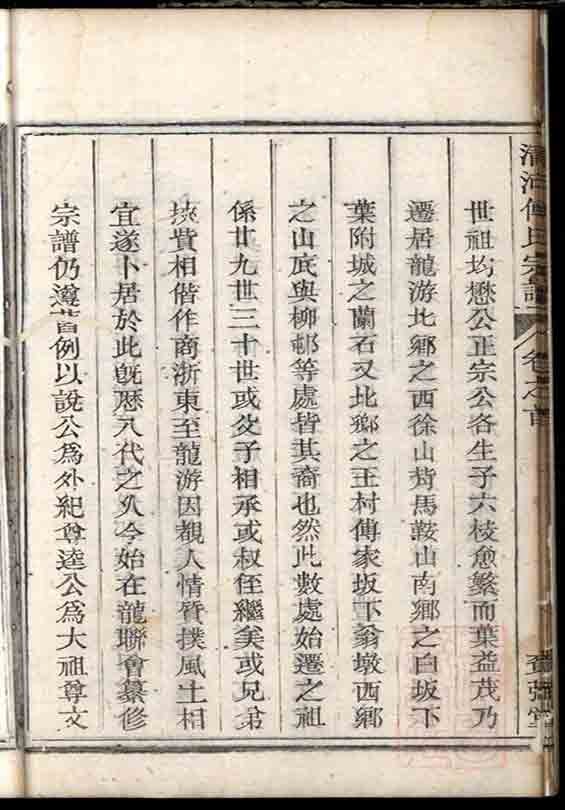 清河傅氏宗譜 卷之首
世祖均懋公正宗公各生子六枝愈繁而葉益茂乃
遷居龍游北鄉之西徐山背馬鞍山南鄉之白坂下
葉附城之蘭石又北鄉之王村傅家坂下翁墩西鄉
之山底與柳邨等處皆其裔也然此數處始遷之祖
係廿九世三十世或父子相承或叔侄繼美或兄弟
塤箎相偕作商浙東至龍游因覩人情質撲風土相
宜遂卜居於此旣歷八代之久今始在龍聯會纂修
宗譜仍遵舊例以說公爲外紀尊逵公爲大祖尊文